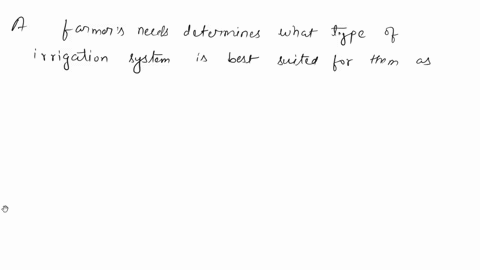 A farmer's needs determines what type of
irrigation system is best suited for them as